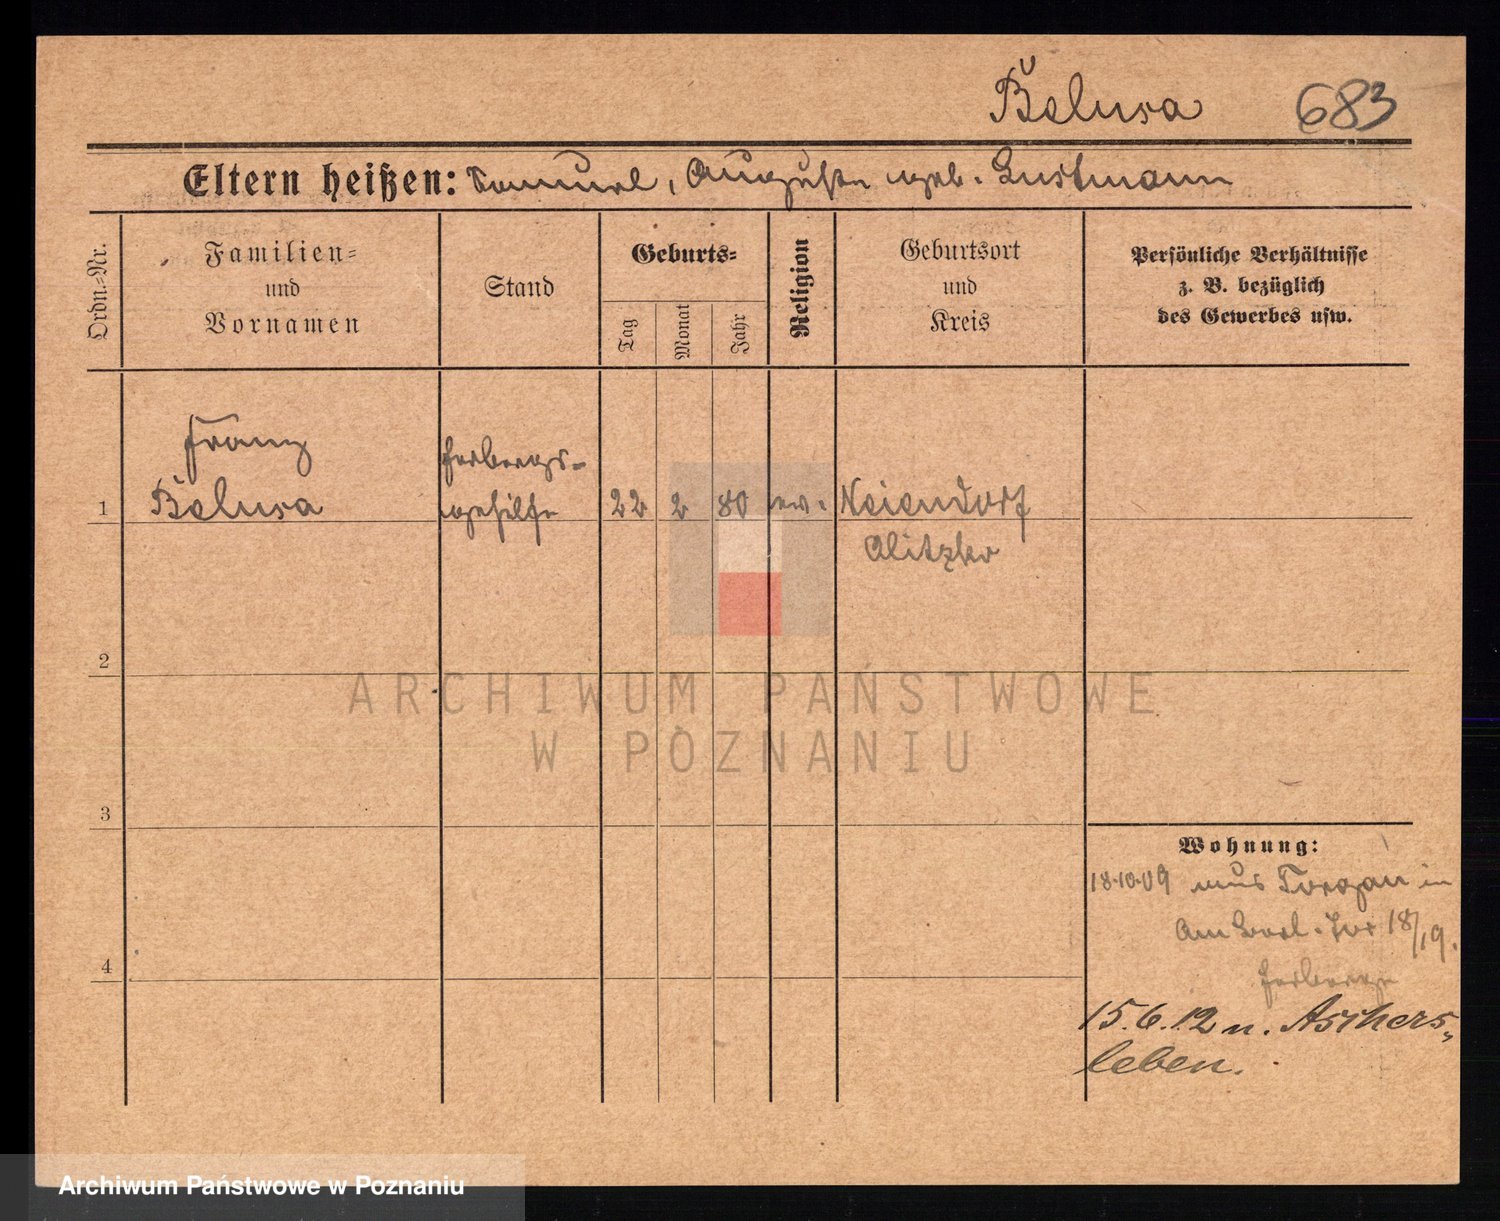 Bełusa 683
Eltern heißen: Samuel, Auguste geb. Lustmann
Ordn.=Nr.
Familien=
und
Vornamen
Stand
Geburts=
Tag
Monat
Jahr
Religion
Geburtsort
und
Kreis
Persönliche Verhältnisse
z. B. bezüglich
des Gewerbes usw.
Franz
Herbergs=
1 Belusa gehilfe 22 2 80 ev. Neiendorf
2
3
4
Wohnung:
18.10.09 aus Torgau in
18/19.
Herberge
15.6.12 n. Aschers=
leben.
ARCHIWUM PAŃSTWOWE
W POZNANIU
Archiwum Państwowe w Poznaniu